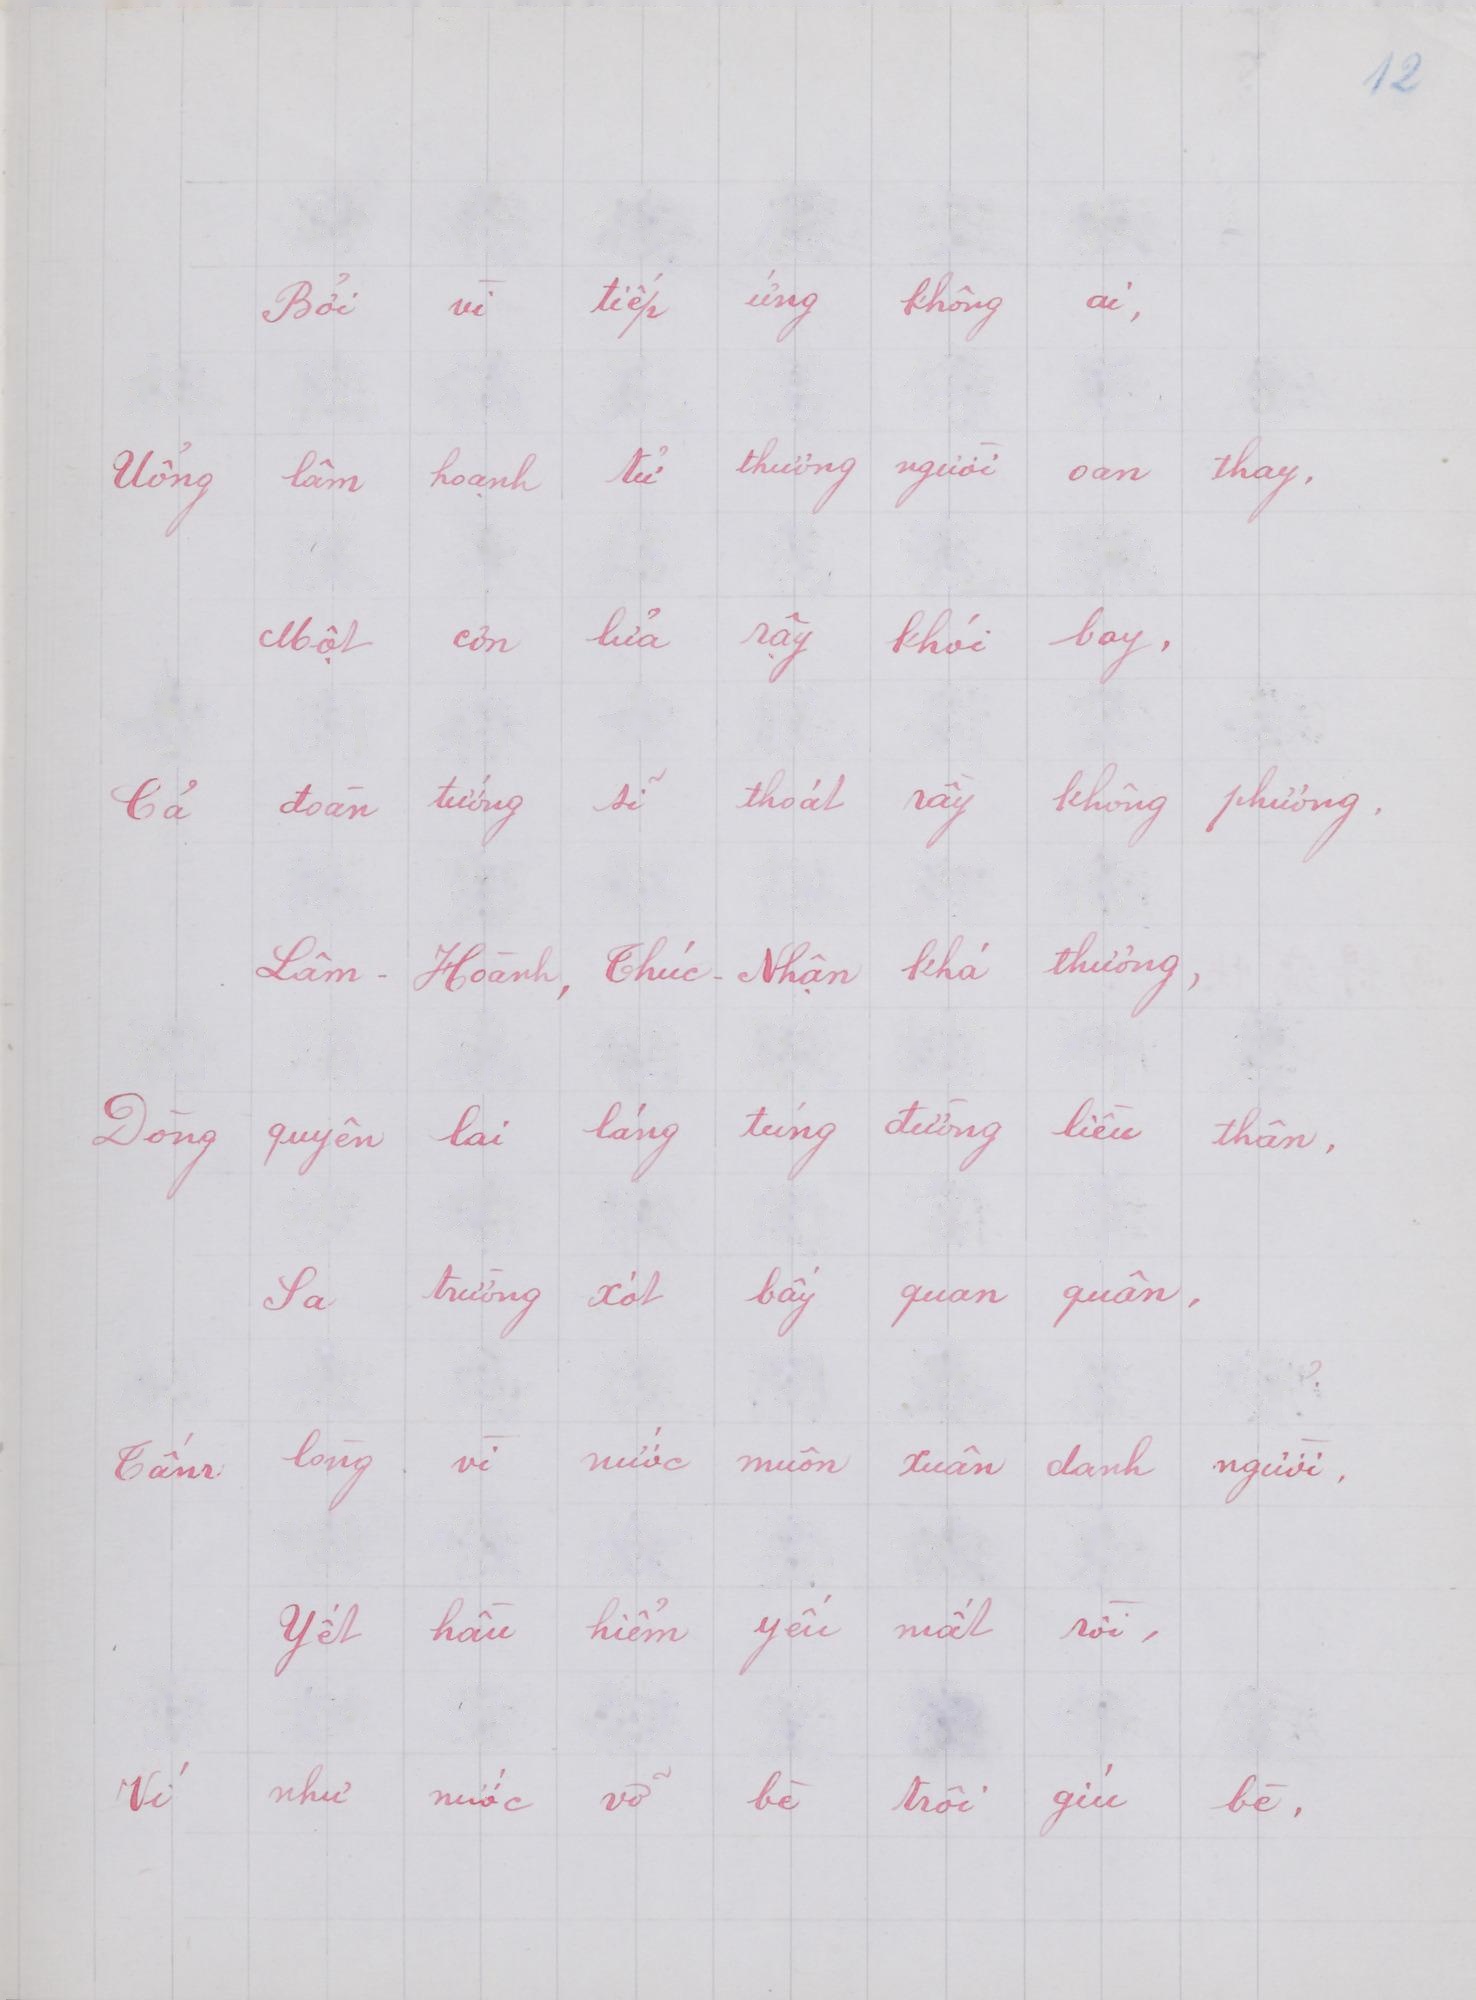 12
Bởi vì tiếp ứng không ai,
Uổng lâm hoạnh tử thương người oan thay.
Một cơn lửa rậy khói bay,
Cả đoàn tướng sĩ thoát rầy không phương.
Lâm - Hoành, Thúc - Nhận khá thương,
Dòng quyên lai láng túng đường liều thân.
Sa trường xót bấy quan quân,
Tấm lòng vì nước muôn xuân danh người.
?
Yết hầu hiểm yếu mất rồi,
Ví như nước vỡ bè trôi giú bè,